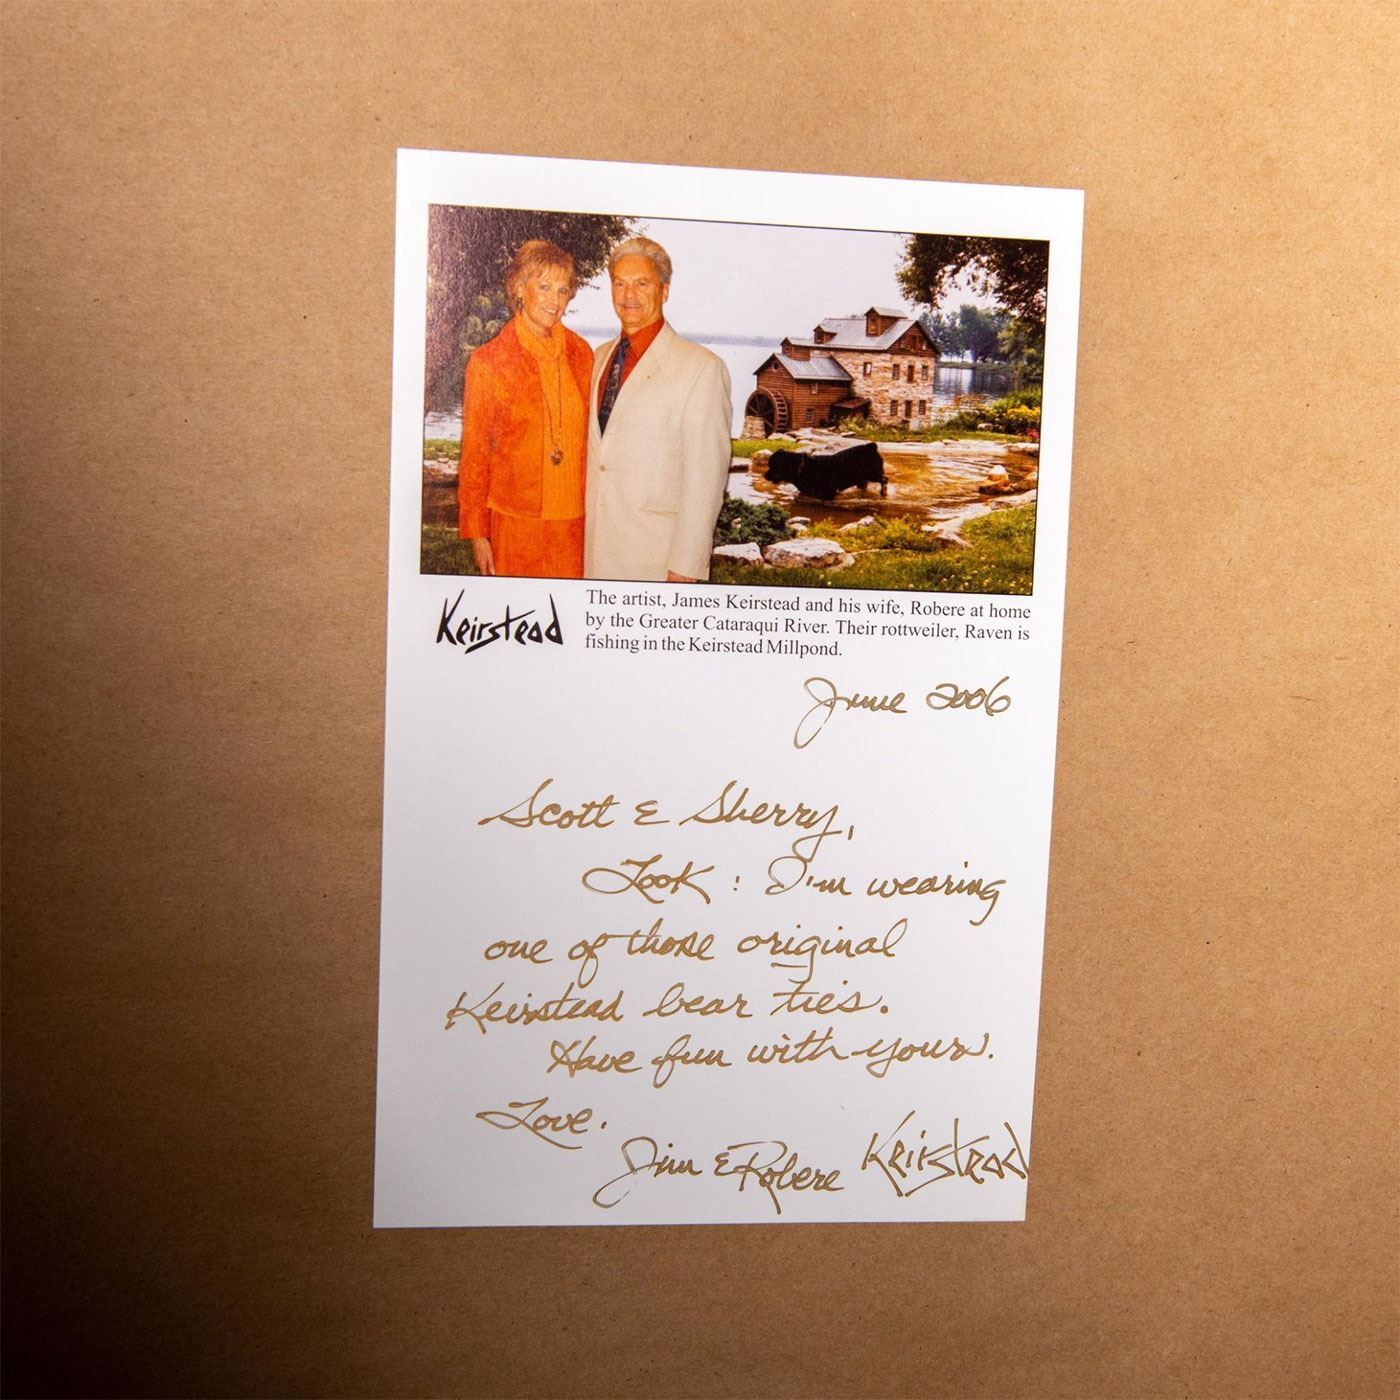 Keirstead
The artist, James Keirstead and his wife, Robere at home
by the Greater Cataraqui River. Their rottweiler, Raven is
fishing in the Keirstead Millpond.
June 2006
Scott & Sherry,
Look: I'm wearing
one of those original
Keirstead bear ties.
Have fun with yours.
Love.
Jim & Robere Keirstead